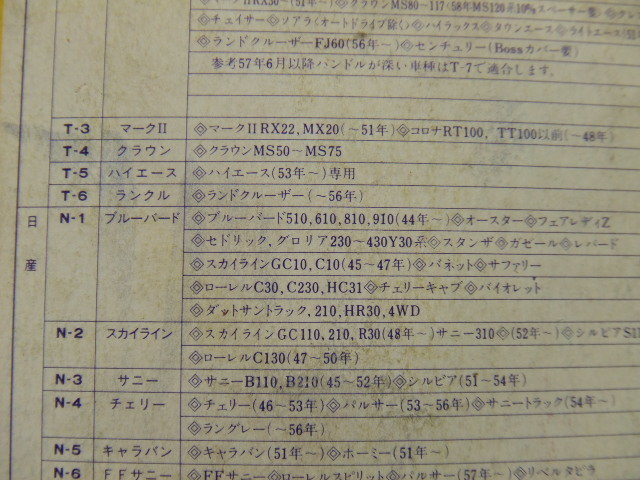 マークⅡRX30(51年～)◇クラウンMS80-117(58年MS120系10%スペーサー要)◇
◇チェイサー◇ソアラ(オートドライブ除く)◇ハイラックス◇タウンエース◇ライトエース
◇ランドクルーザーFJ60(56年～)◇センチュリー(Bossカバー要)
参考57年6月以降ハンドルが深い車種はT-7で適合します。
T-3 マークⅡ ◇マークⅡRX22,MX20(～51年)◇コロナRT100, TT100以前(～48年)
T-4 クラウン ◇クラウンMS50～MS75
T-5 ハイエース ◇ハイエース(53年～)専用
T-6 ランクル ◇ランドクルーザー(～56年)
日産
N-1 ブルーバード ◇ブルーバード510,610,810,910(44年～)◇オースター◇フェアレディZ
◇セドリック,グロリア230～430Y30系◇スタンザ◇ガゼール◇レパード
◇スカイラインGC10,C10(45～47年)◇バネット◇サファリー
◇ローレルC30,C230,HC31◇チェリーキャブ◇バイオレット
◇ダットサントラック,210,HR30,4WD
N-2 スカイライン ◇スカイラインGC110,210,R30(48年～)サニー310◇(52年～)◇シルビアS11
◇ローレルC130(47～50年)
N-3 サニー ◇サニーB110,B210(45～52年)◇シルビア(51～54年)
N-4 チェリー ◇チェリー(46～53年)◇パルサー(53～56年)◇サニートラック(54年～)
◇ラングレー(～56年)
N-5 キャラバン ◇キャラバン(51年～)◇ホーミー(51年～)
N-6 FFサニー ◇FFサニー◇ローレルスピリット◇パルサー(57年～)◇リベルタビラ